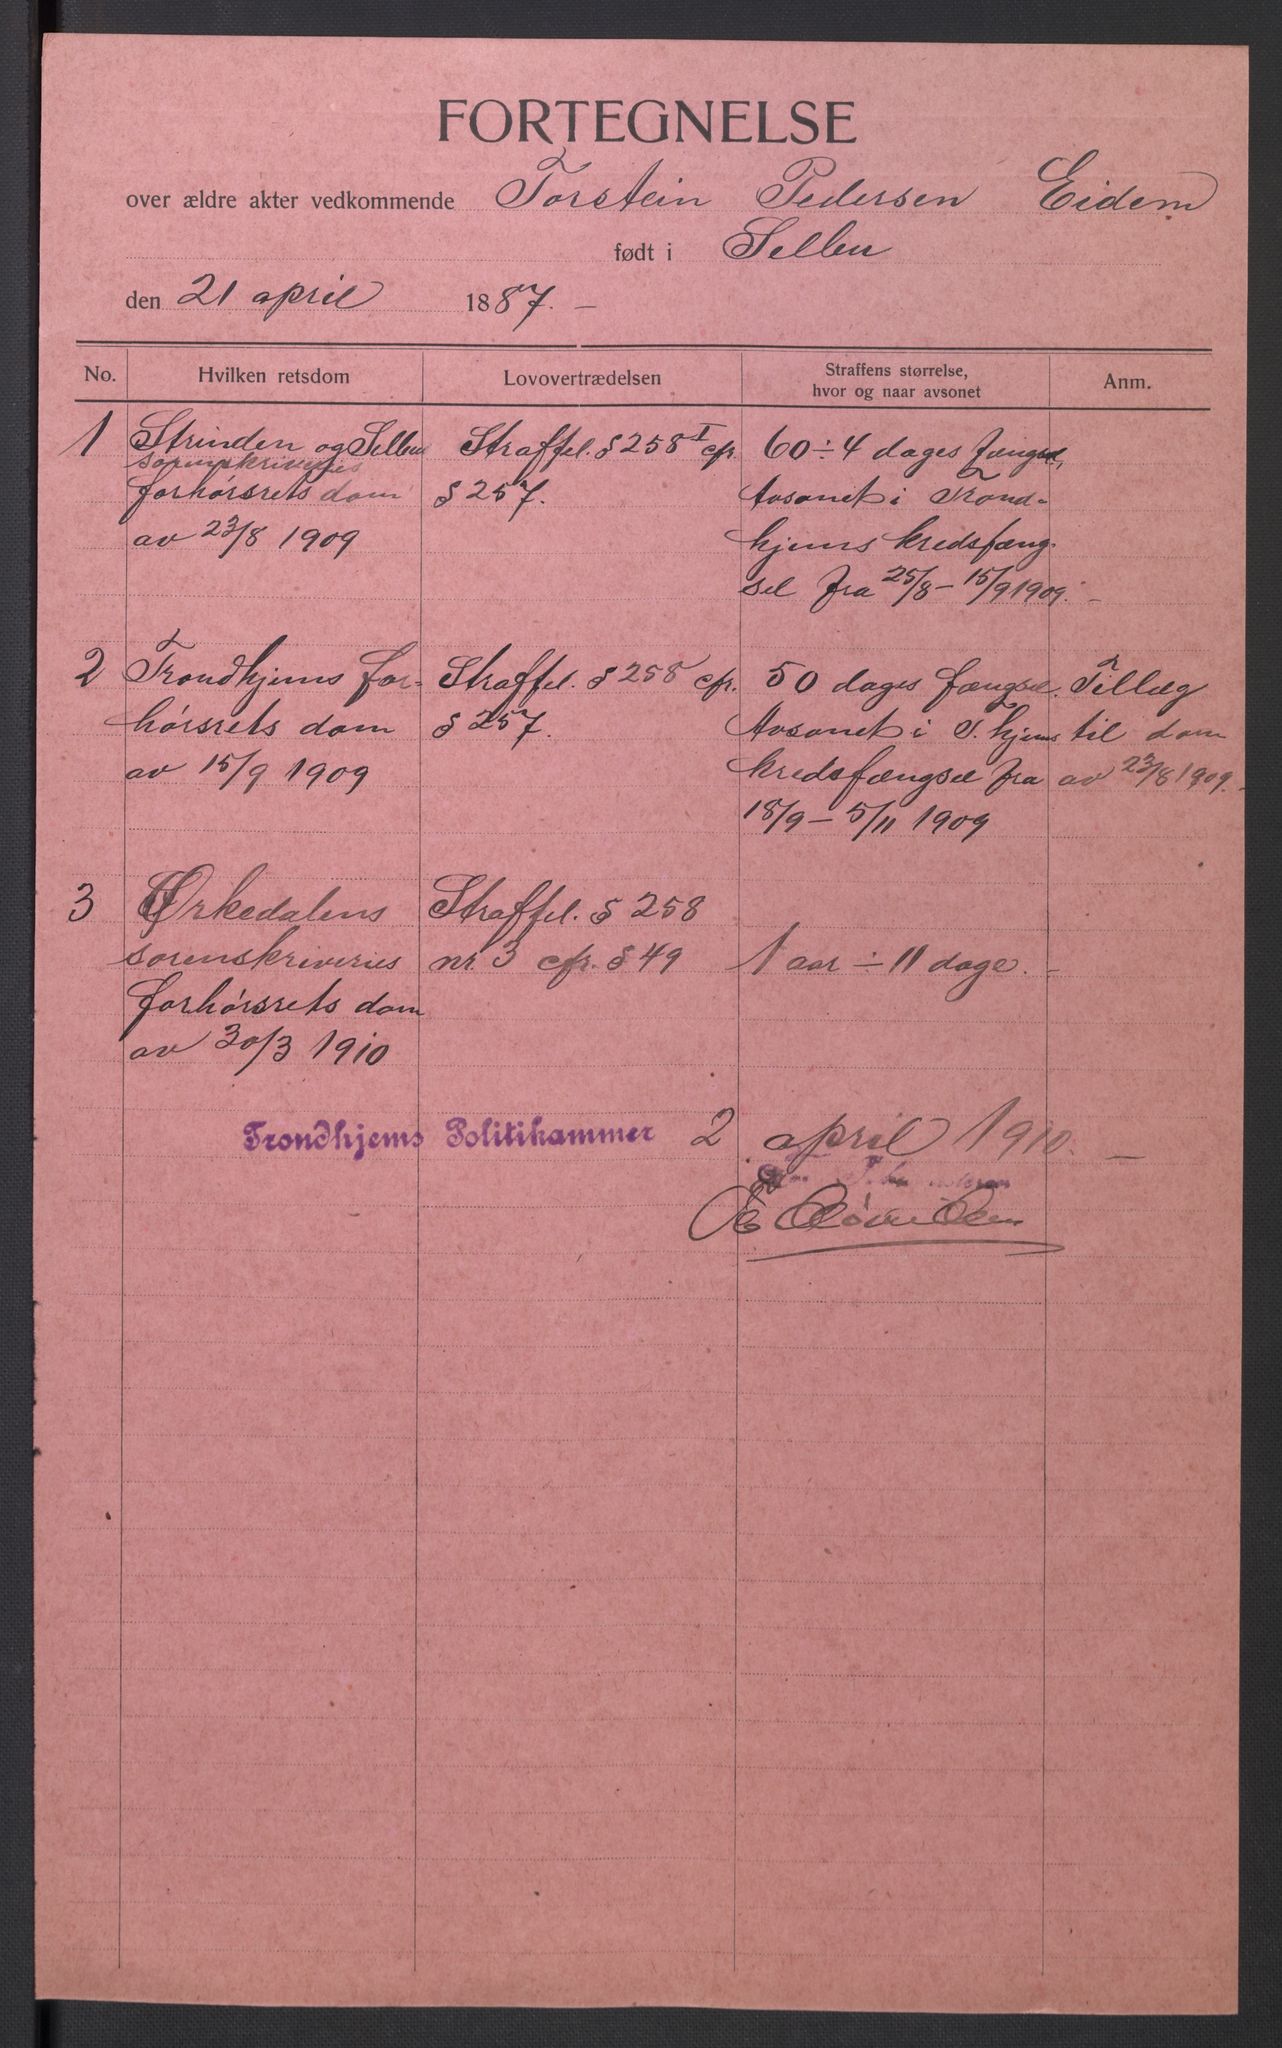 FORTEGNELSE
over ældre akter vedkommende Torstein Pedersen Eidem
født i Selbu
den 21 april 1887. –
No. Hvilken retsdom Lovovertrædelsen Straffens størrelse, hvor og naar avsonet Anm.
1 Strinden og Selbu Straffel. § 258 I cfr. 60 ÷ 4 dages fængsel,
sorenskriveries
forhørsrets dom § 257. Avsonet i Trond-
av 23/8 1909 hjems kredsfæng-
sel fra 25/8 – 15/9 1909. –
2 Trondhjems for- Straffel. § 258 cfr. 50 dages fængsel. Tillæg
hørsrets dom § 257. Avsonet i T.hjems til dom
av 15/9 1909 kredsfængsel fra av 23/8 1909. –
18/9 – 5/11 1909
3 Ørkedalens Straffel. § 258
sorenskriveries nr. 3 cfr. § 49 1 aar ÷ 11 dage. –
forhørsrets dom
av 30/3 1910
Trondhjems Politikammer 2 april 1910. –